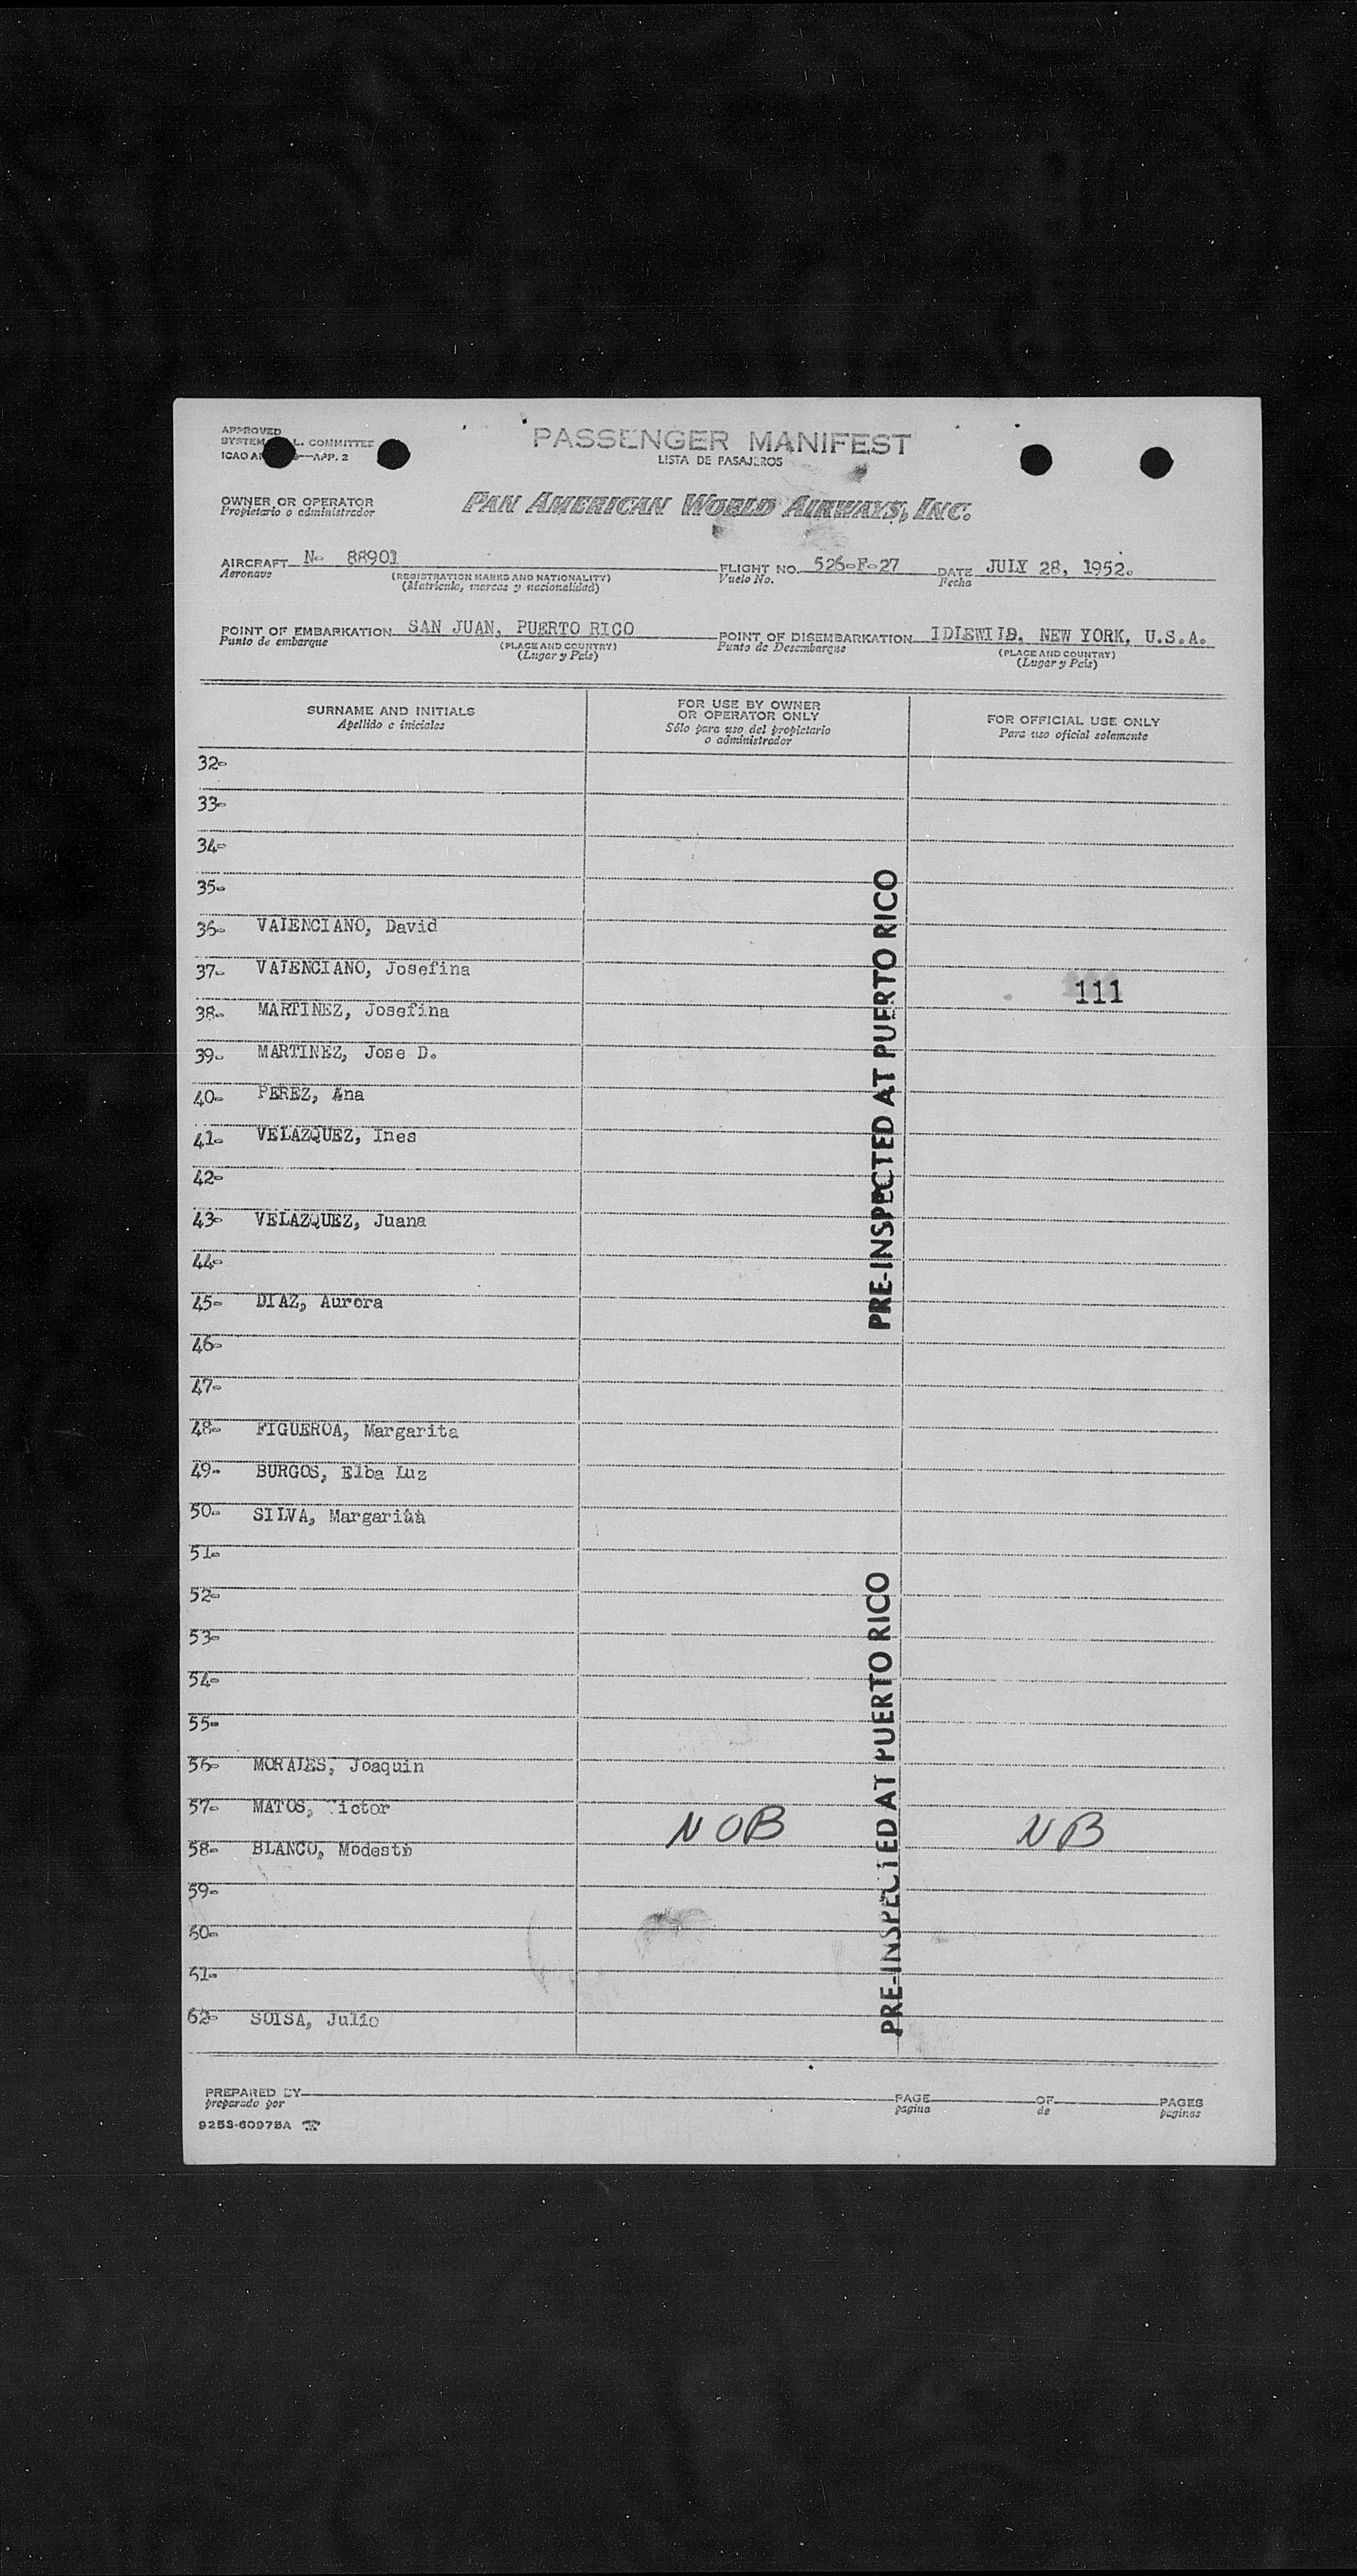 APPROVED
SYSTEM L. COMMITTEE
ICAO —APP. 2
PASSENGER MANIFEST
LISTA DE PASAJEROS
OWNER OR OPERATOR
Propietario o administrador
PAN AMERICAN WORLD AIRWAYS, INC.
AIRCRAFT N- 88901 FLIGHT NO. 526-F-27 DATE JULY 28, 1952.
Aeronave (REGISTRATION MARKS AND NATIONALITY) Vuelo No. Fecha
(Matrícula, marcas y nacionalidad)
POINT OF EMBARKATION SAN JUAN, PUERTO RICO POINT OF DISEMBARKATION IDLEWILD, NEW YORK, U.S.A.
Punto de embarque (PLACE AND COUNTRY) Punto de Desembarque (PLACE AND COUNTRY)
(Lugar y País) (Lugar y País)
SURNAME AND INITIALS
Apellido e iniciales
FOR USE BY OWNER
OR OPERATOR ONLY
Sólo para uso del propietario
o administrador
FOR OFFICIAL USE ONLY
Para uso oficial solamente
32-
33-
34-
35-
36- VALENCIANO, David
37- VALENCIANO, Josefina
111
38- MARTINEZ, Josefina
39- MARTINEZ, Jose D.
40- PEREZ, Ana
41- VELAZQUEZ, Ines
42-
43- VELAZQUEZ, Juana
44-
45- DIAZ, Aurora
46-
47-
48- FIGUEROA, Margarita
49- BURGOS, Elba Luz
50- SILVA, Margarita
51-
52-
53-
54-
55-
56- MORALES, Joaquin
57- MATOS, Victor
NOB NB
58- BLANCO, Modesto
59-
60-
61-
62- SOISA, Julio
PRE-INSPECTED AT PUERTO RICO
PRE-INSPECTED AT PUERTO RICO
PREPARED BY PAGE OF PAGES
preparado por página de páginas
9253-60975A